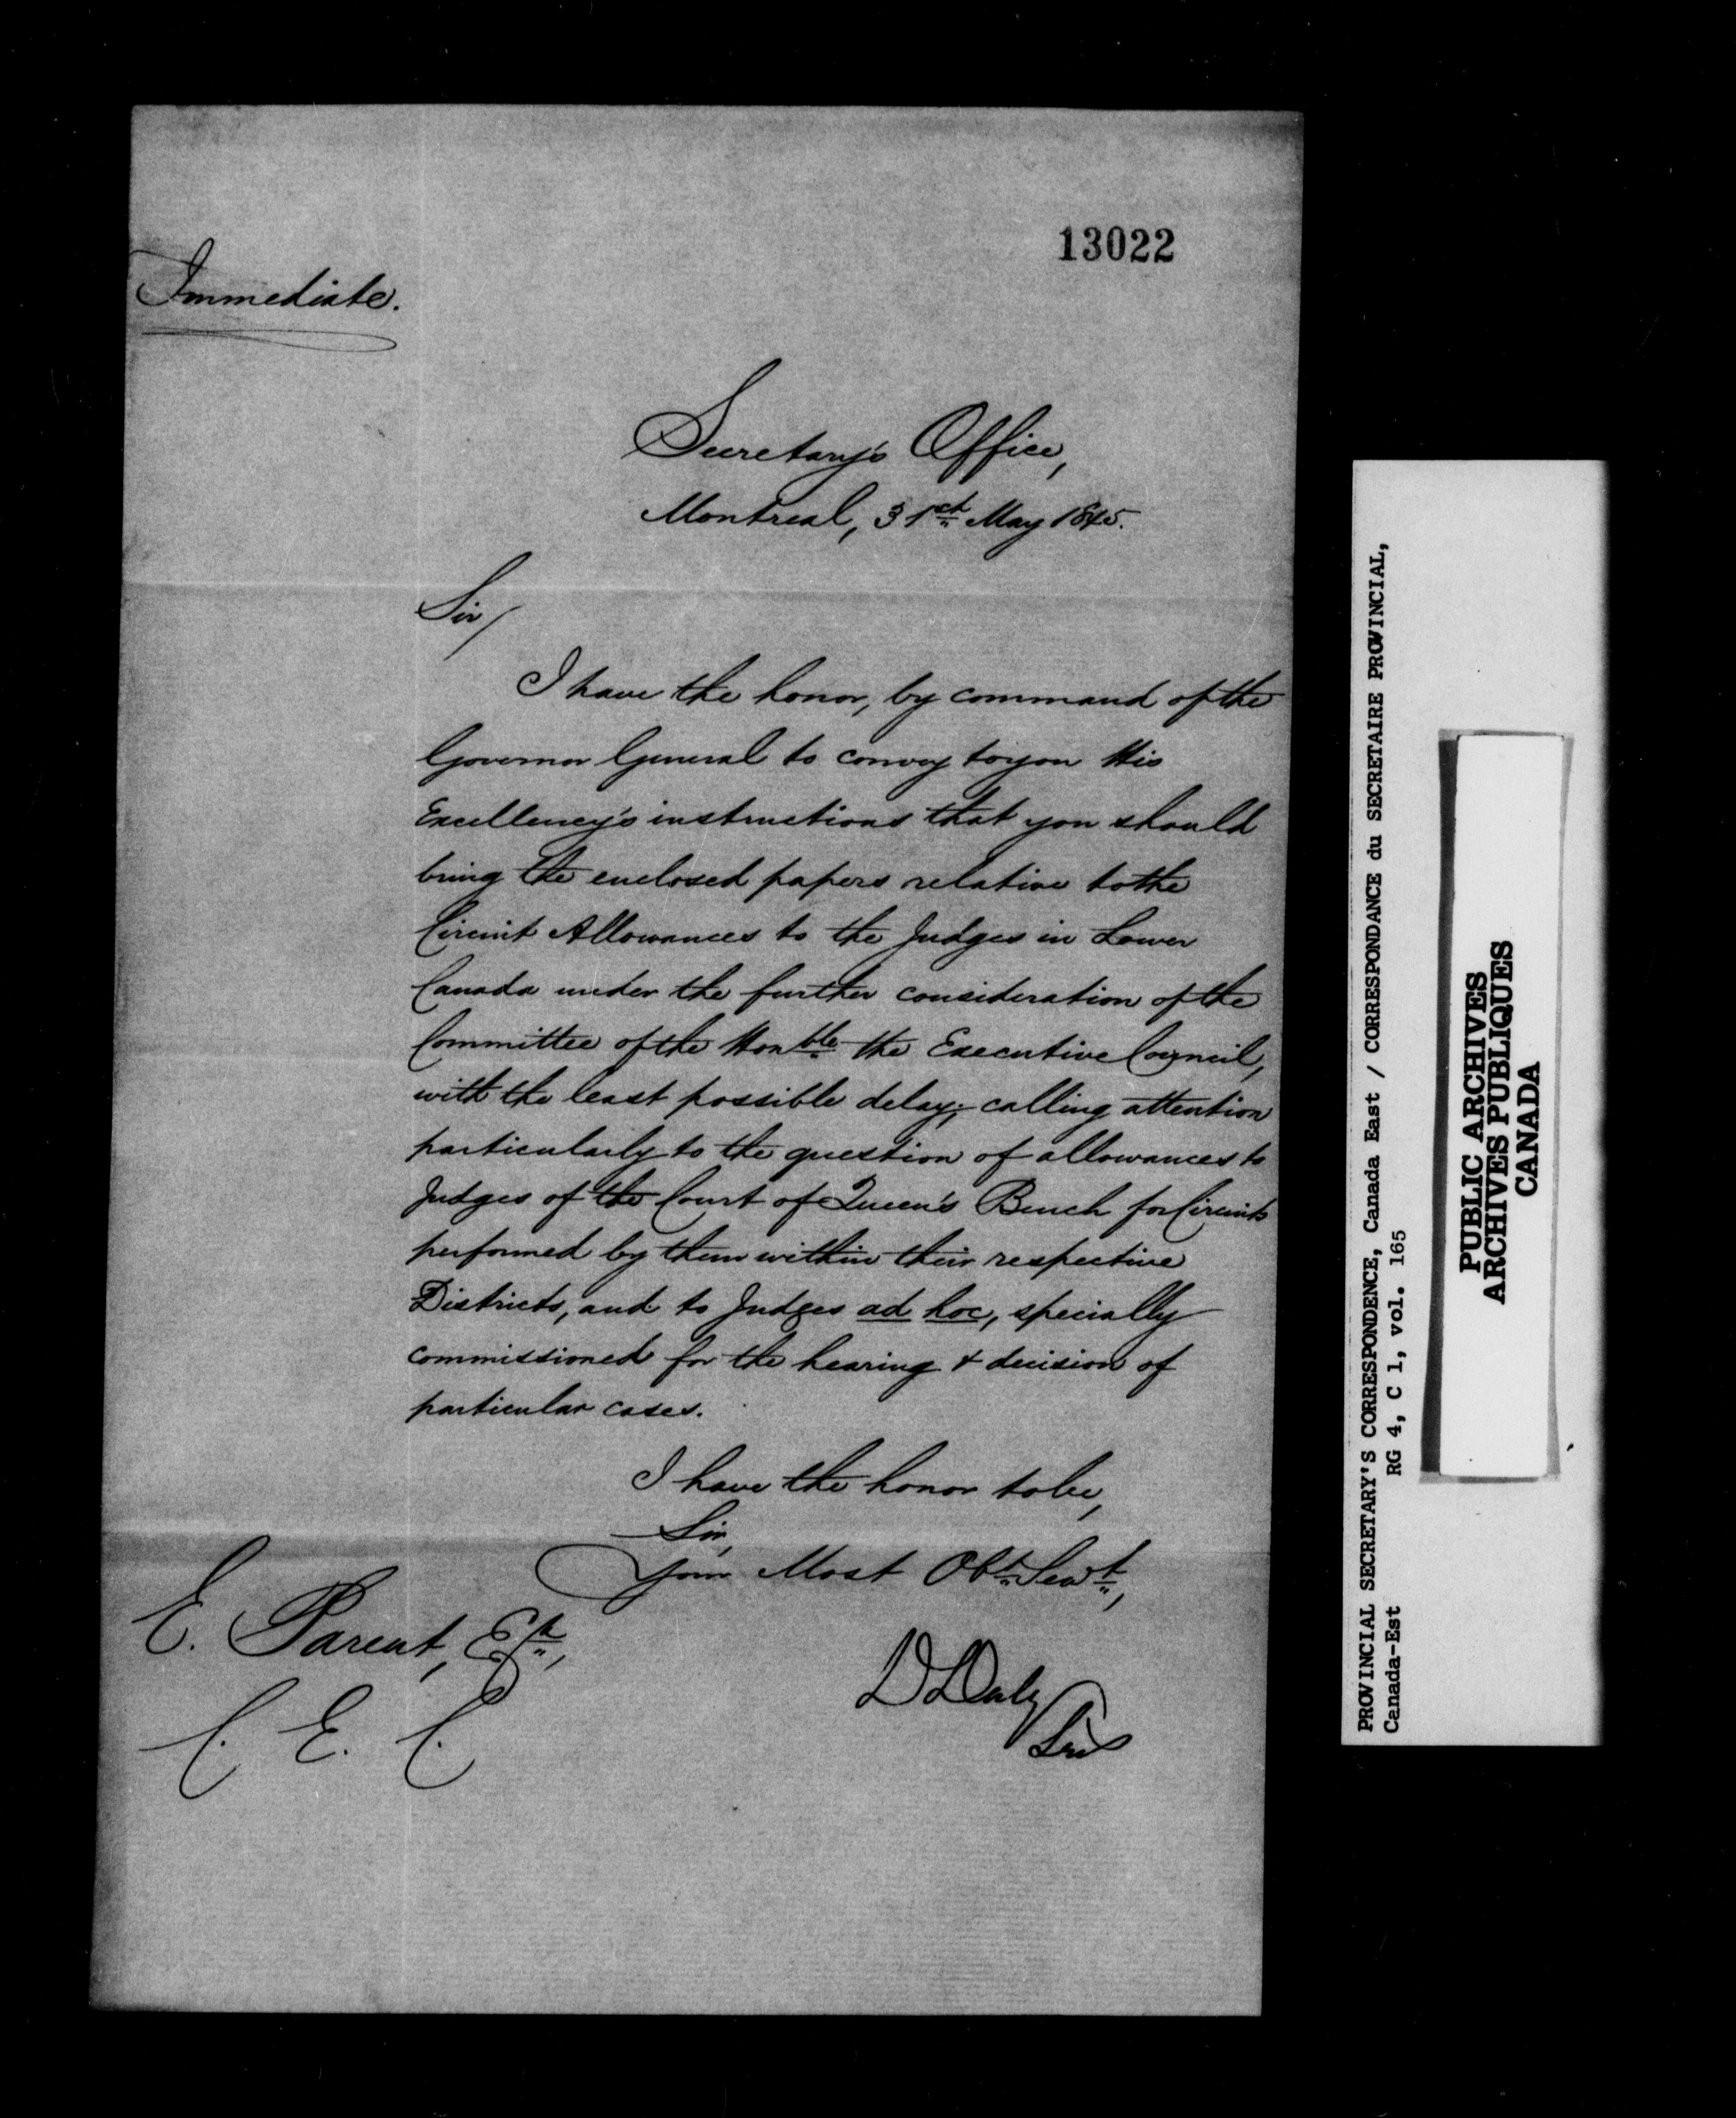 13022
Immediate.
Secretary's Office,
Montreal, 31st May 1845.
Sir/
I have the honor, by command of the
Governor General to convey to you His
Excellency's instructions that you should
bring the enclosed papers relative to the
Circuit Allowances to the Judges in Lower
Canada under the further consideration of the
Committee of the Honble the Executive Council,
with the least possible delay; calling attention
particularly to the question of allowances to
Judges of the Court of Queen's Bench for Circuits
performed by them within their respective
Districts, and to Judges ad hoc, specially
commissioned for the hearing & decision of
particular cases.
I have the honor to be,
Sir,
Your Most Obt Servt,
E. Parent, Esqr,
C. E. C.
D Daly
Secy
PROVINCIAL SECRETARY'S CORRESPONDENCE, Canada East / CORRESPONDANCE du SECRETAIRE PROVINCIAL,
Canada-Est RG 4, C 1, vol. 165
PUBLIC ARCHIVES
ARCHIVES PUBLIQUES
CANADA